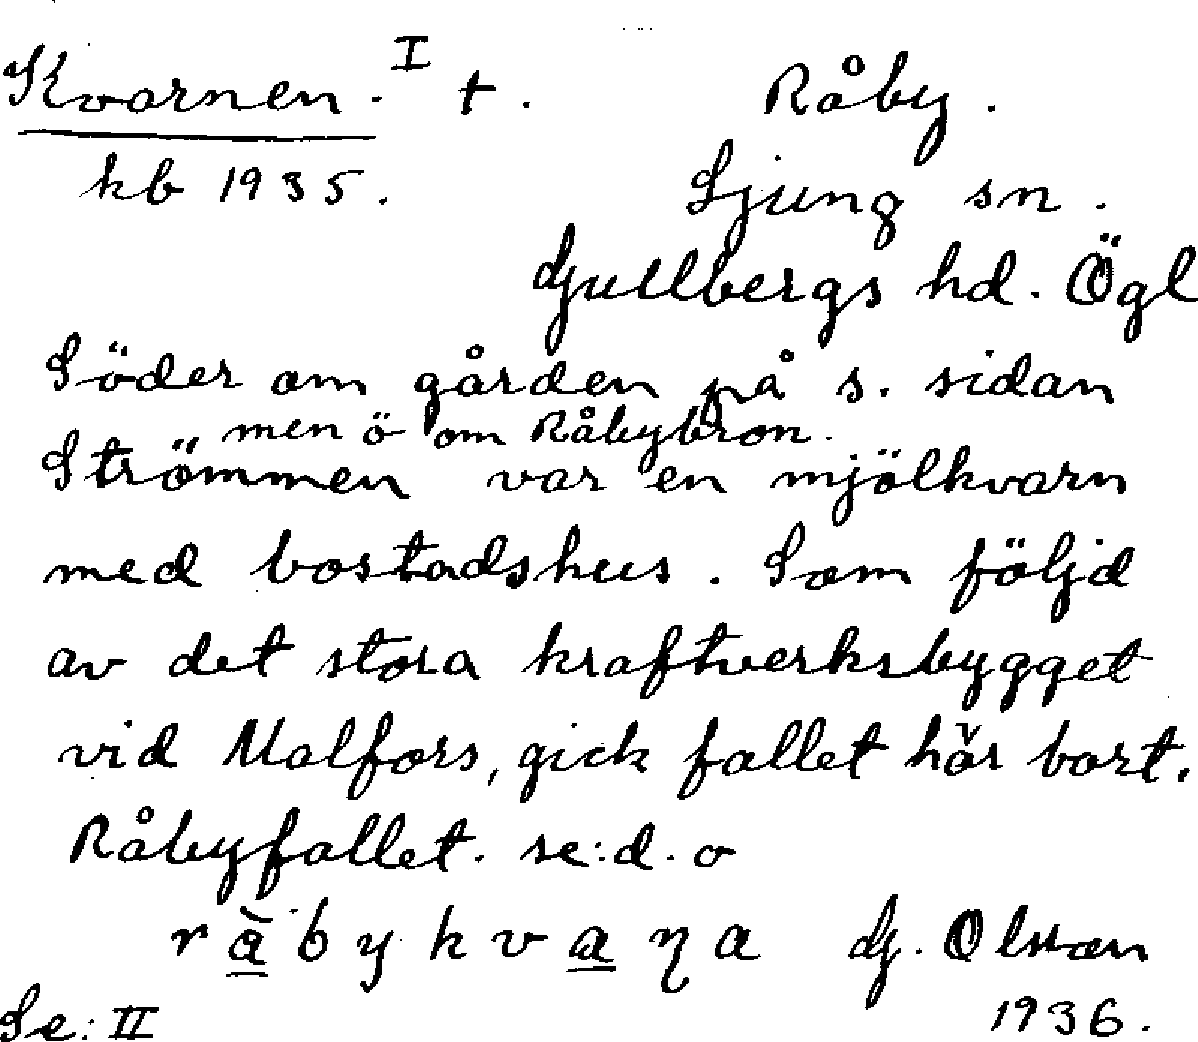 Kvarnen. I t. Råby.
kb 1935. Ljung sn.
Gullbergs hd. Ögl
Söder om gården på s. sidan
men ö om Råbybron.
Strömmen var en mjölkvarn
med bostadshus. Som följd
av det stora kraftverksbygget
vid Malfors, gick fallet här bort.
Råbyfallet. se: d. o
råbykvaɳa G. Olsson
Se: II 1936.